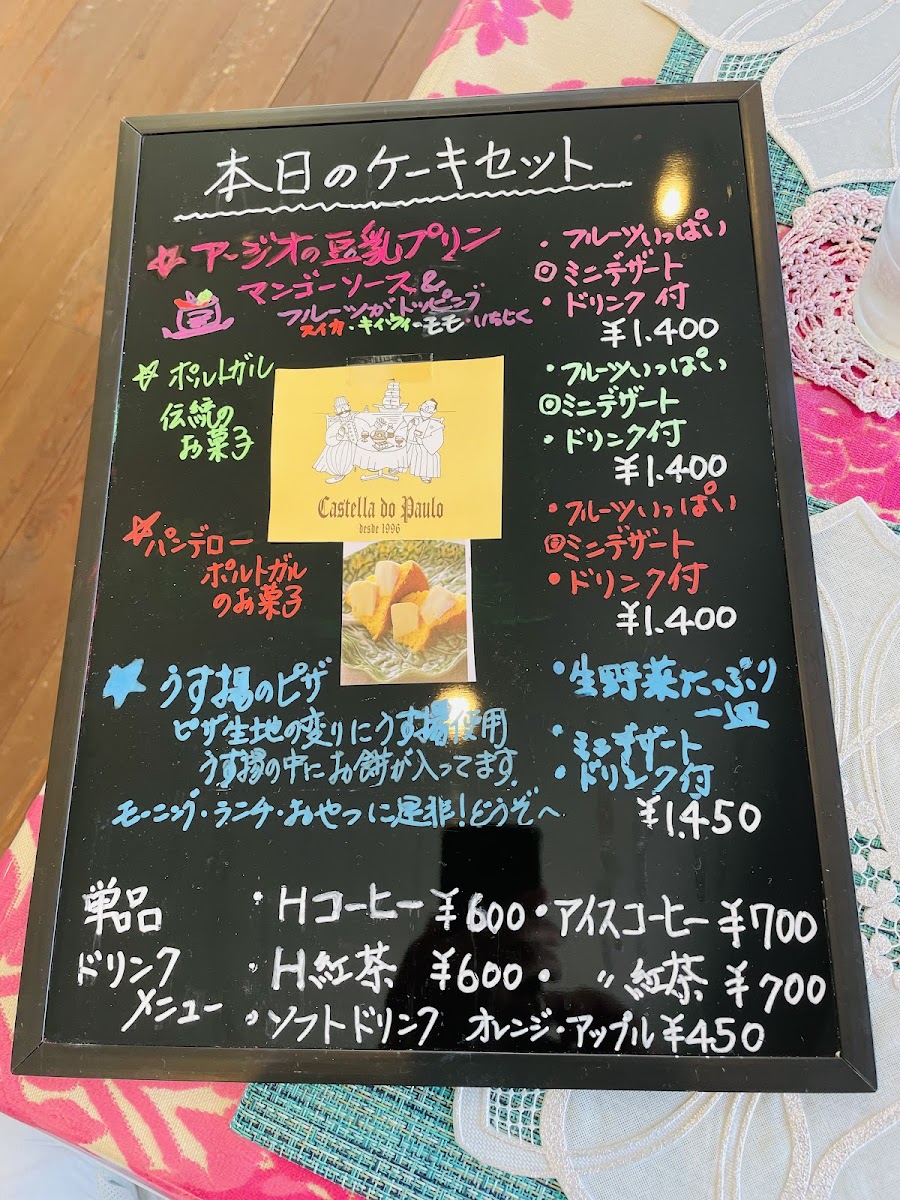 本日のケーキセット
☆ アージオの豆乳プリン
マンゴーソース&
フルーツがトッピング
スイカ・キィウィー・モモ・いちじく
豆
・フルーツいっぱい
◎ミニデザート
・ドリンク付
¥1.400
☆ ポルトガル
伝統の
お菓子
・フルーツいっぱい
◎ミニデザート
・ドリンク付
¥1.400
Castella do Paulo
desde 1996
☆パンデロー
ポルトガル
のお菓子
・フルーツいっぱい
◎ミニデザート
・ドリンク付
¥1.400
★ うす揚のピザ
ピザ生地の変りにうす揚使用
うす揚の中にお餅が入ってます.
モーニング・ランチ・おやつに是非!どうぞへ
・生野菜たっぷり
一皿
・ミニデザート
・ドリンク付
¥1.450
単品
ドリンク
メニュー
・Hコーヒー ¥600・アイスコーヒー ¥700
・H紅茶 ¥600・〃紅茶 ¥700
・ソフトドリンク オレンジ・アップル ¥450